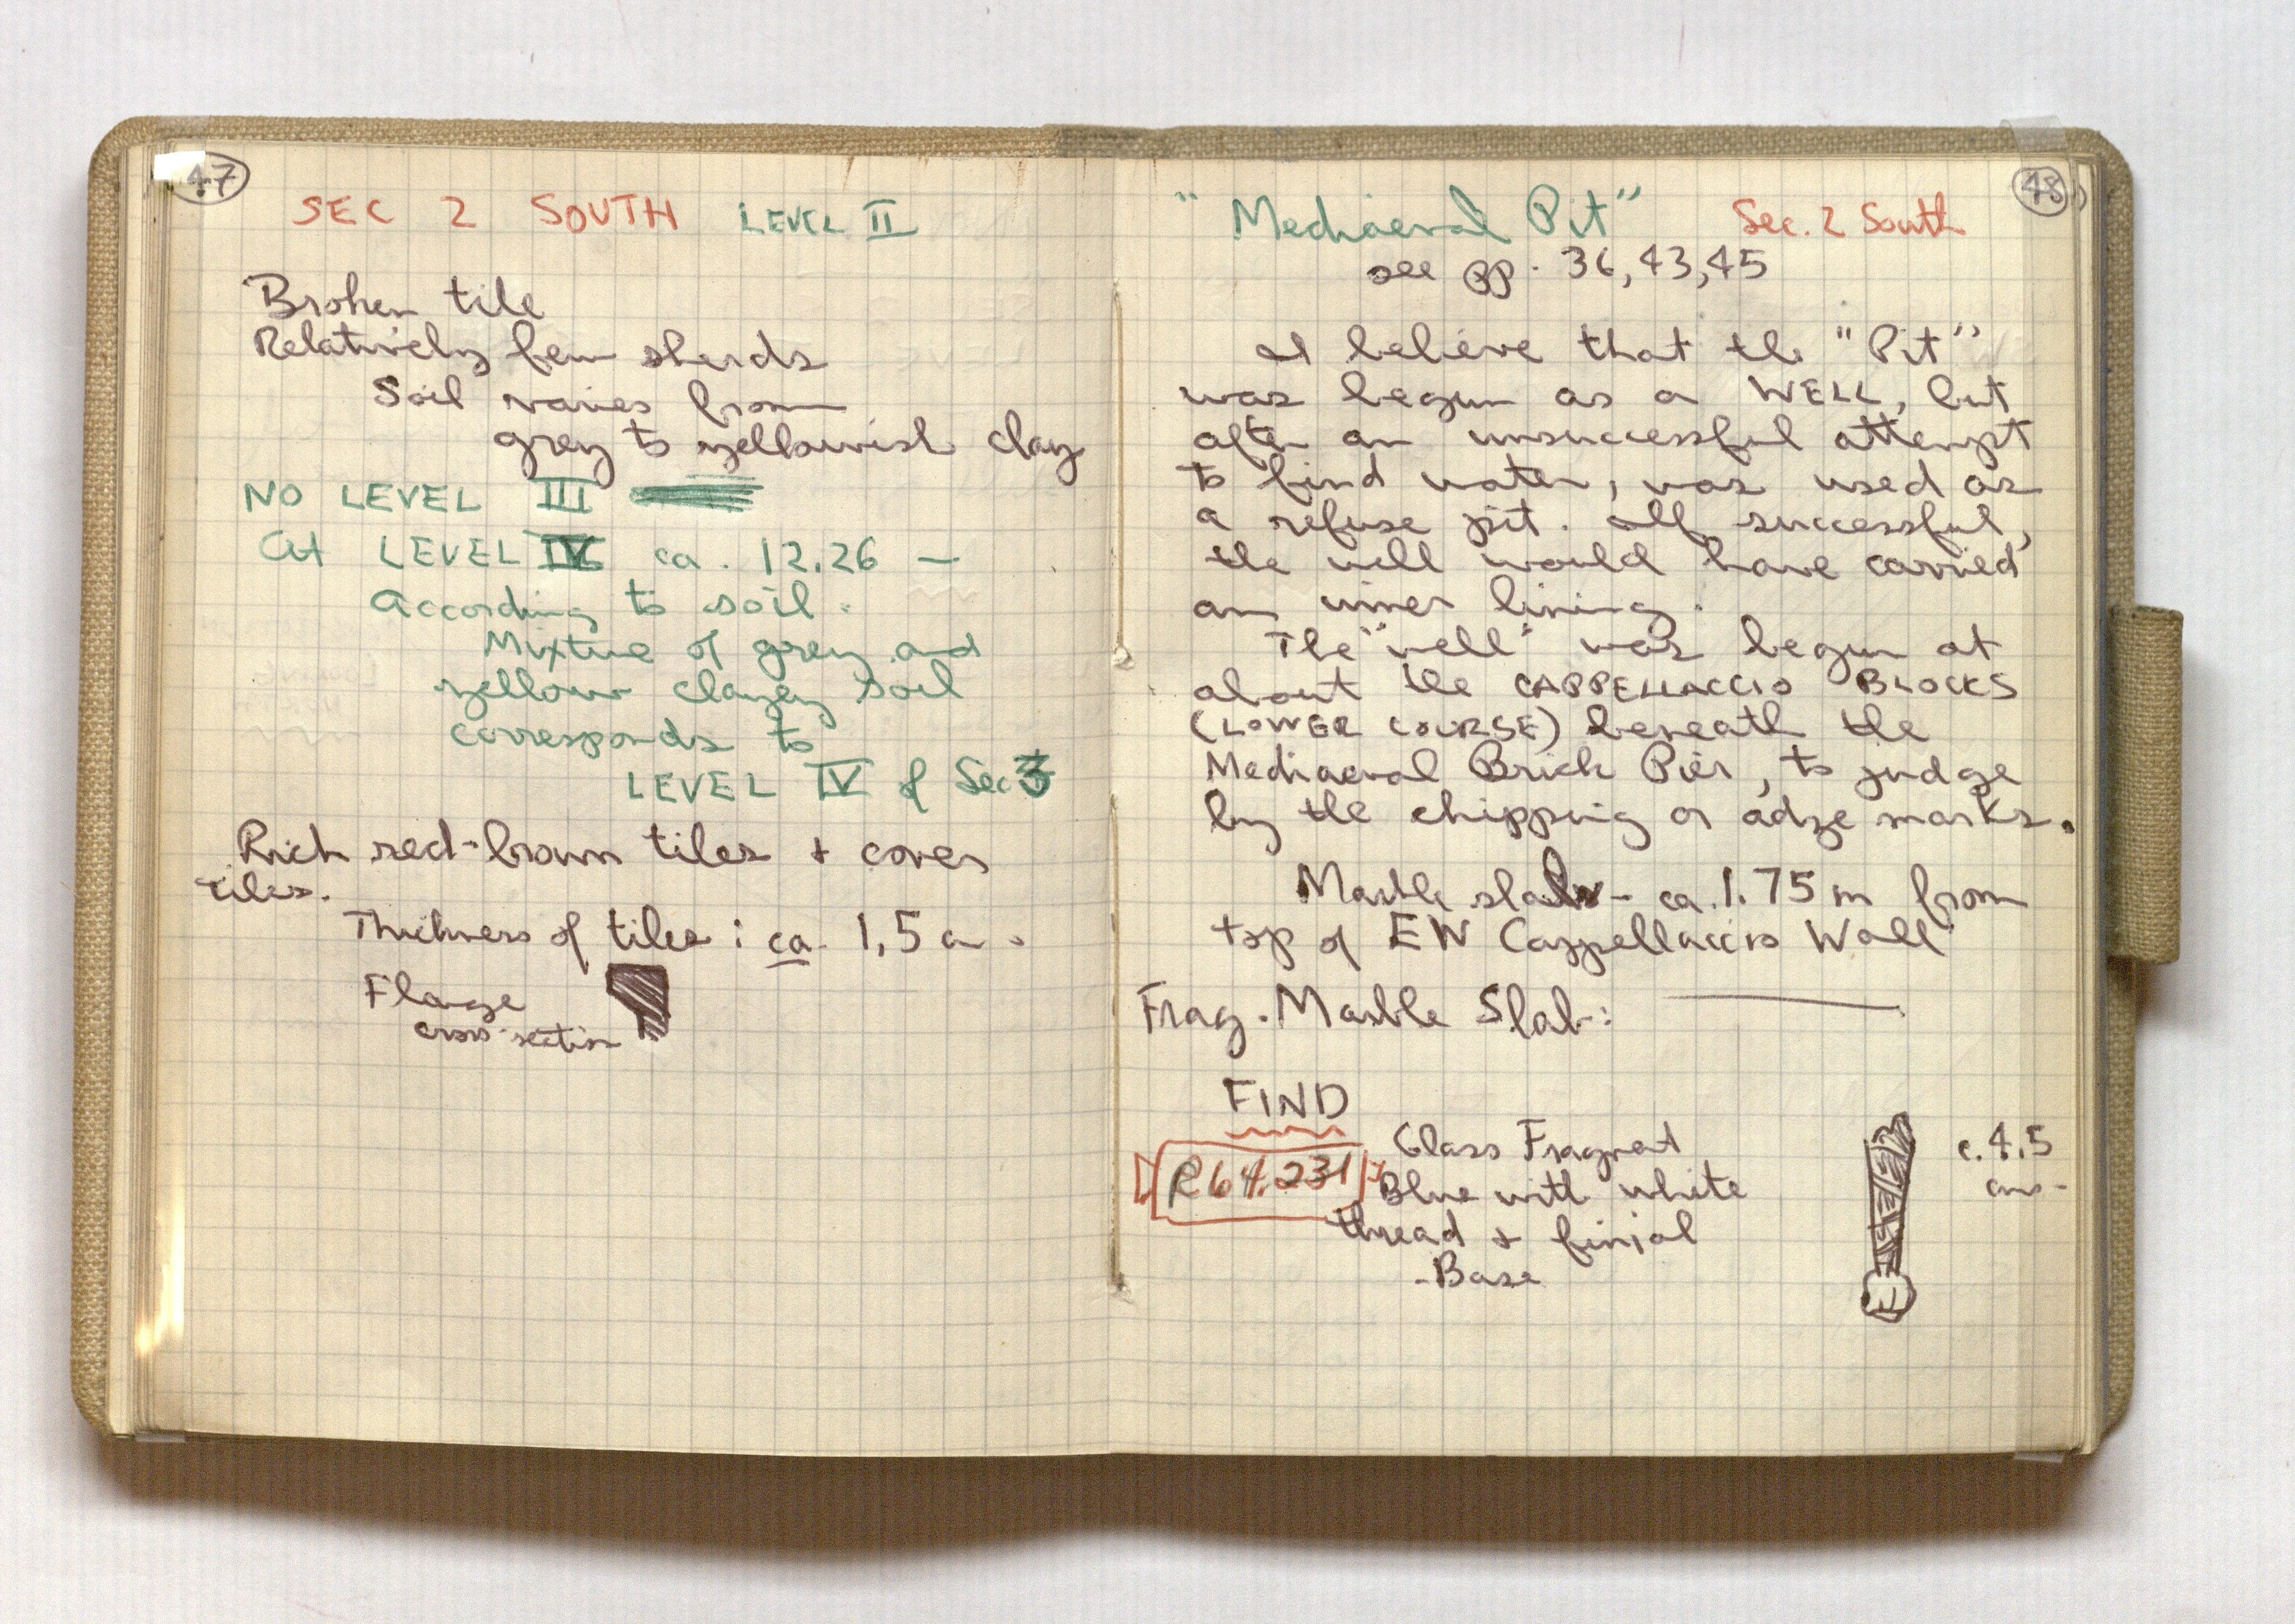 47
SEC 2 SOUTH LEVEL II
Broken tile
Relatively few sherds
Soil varies from
grey to yellowish clay
NO LEVEL III
At LEVEL IV ca. 12.26 —
According to soil.
Mixture of grey and
yellow clayey soil
corresponds to
LEVEL IV of Sec 3
Rich red-brown tiles + cover
tiles.
Thickness of tiles : ca. 1,5 cm.
Flange
cross-section
48
"Mediaeval Pit" Sec. 2 South
see pp. 36, 43, 45
I believe that the "Pit"
was begun as a WELL, but
after an unsuccessful attempt
to find water, was used as
a refuse pit. If successful,
the well would have carried
an inner lining.
The "well" was begun at
about the CAPPELLACCIO BLOCKS
(LOWER COURSE) beneath the
Mediaeval Brick Pier, to judge
by the chipping or adze marks.
Marble slab - ca. 1.75 m from
top of EW Cappellaccio Wall
Frag. Marble Slab:
FIND
R64.231 Glass Fragment
Blue with white
thread + finial
- Base
c. 4.5
cms.